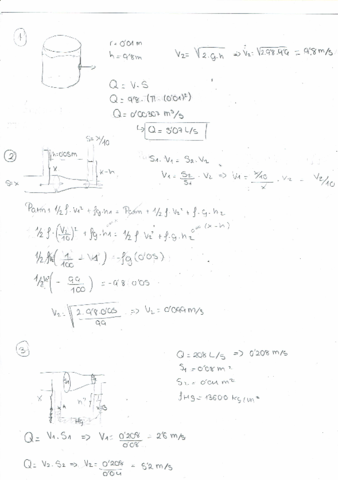 1
r = 0'01m
h = 4'9m
V2 = √2.g.h ⇒ V2 = √2.9'8.4'9 = 9'8 m/s
Q = V.S
Q = 9'8.(π.(0'01)²)
Q = 0'00307 m³/s
↳ Q = 3'07 L/s
2
S1.V1 = S2.V2
V1 = S2/S1 . V2 ⇒ V1 = . V2 = V2/10
Patm + 1/2 ρ.V1² + ρg.h1 = Patm + 1/2 ρ.V2² + ρ.g.h2
1/2 ρ.(V2/10)² + ρg.h1 = 1/2 ρ V2² + ρ.g.h2
(1/100 - 1) = -ρg(0'03)
(- 99/100) = -9'8.0'03
V2 = ⇒ V2 = m/s
3
Q = 208 L/s ⇒ 0'208 m/s
S1 = 0'08 m²
S2 = 0'04 m²
ρHg = 13600 kg/m³
Q = V1.S1 ⇒ V1 = 0'208/0'08 = 2'6 m/s
Q = V2.S2 ⇒ V2 = 0'208/0'04 = 5'2 m/s